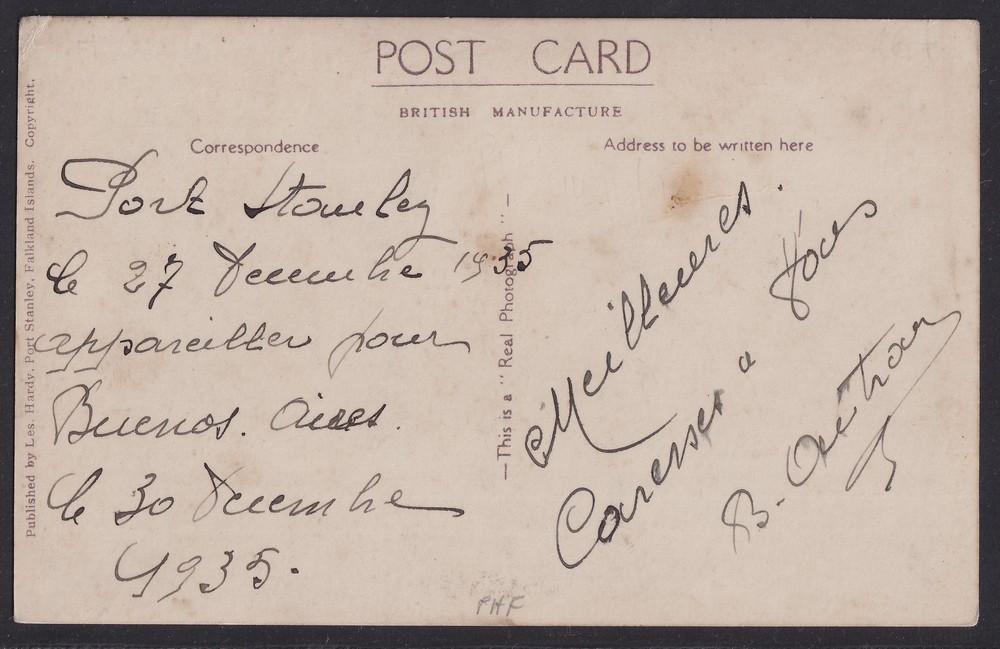 POST CARD
BRITISH MANUFACTURE
Correspondence
Address to be written here
Published by Les. Hardy, Port Stanley, Falkland Islands. Copyright.
—This is a "Real Photograph"—
Port Stanley
le 27 Decembre 1935
appareiller pour
Buenos. Aires.
le 30 Decembre
1935.
Meilleures.
Caresses a tous
B.
PHF